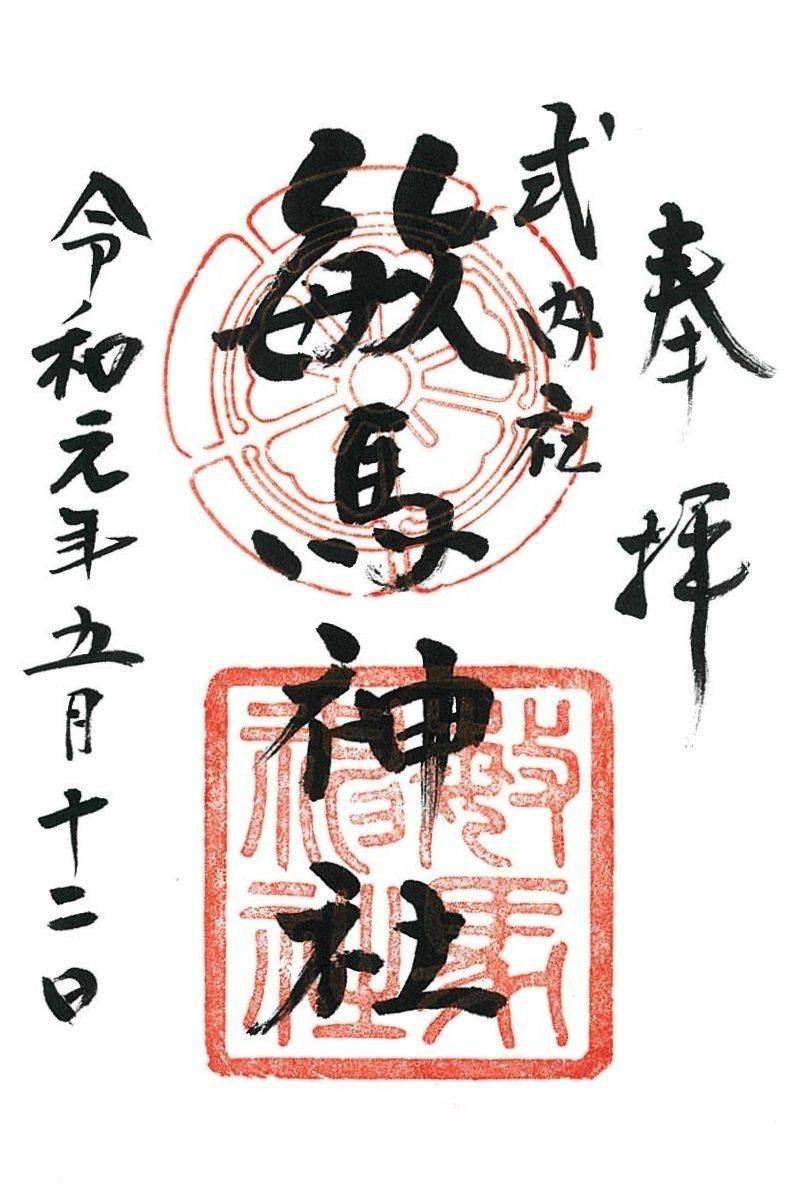 奉拝
式内社
敏馬神社
令和元年五月十二日
敏馬
神社